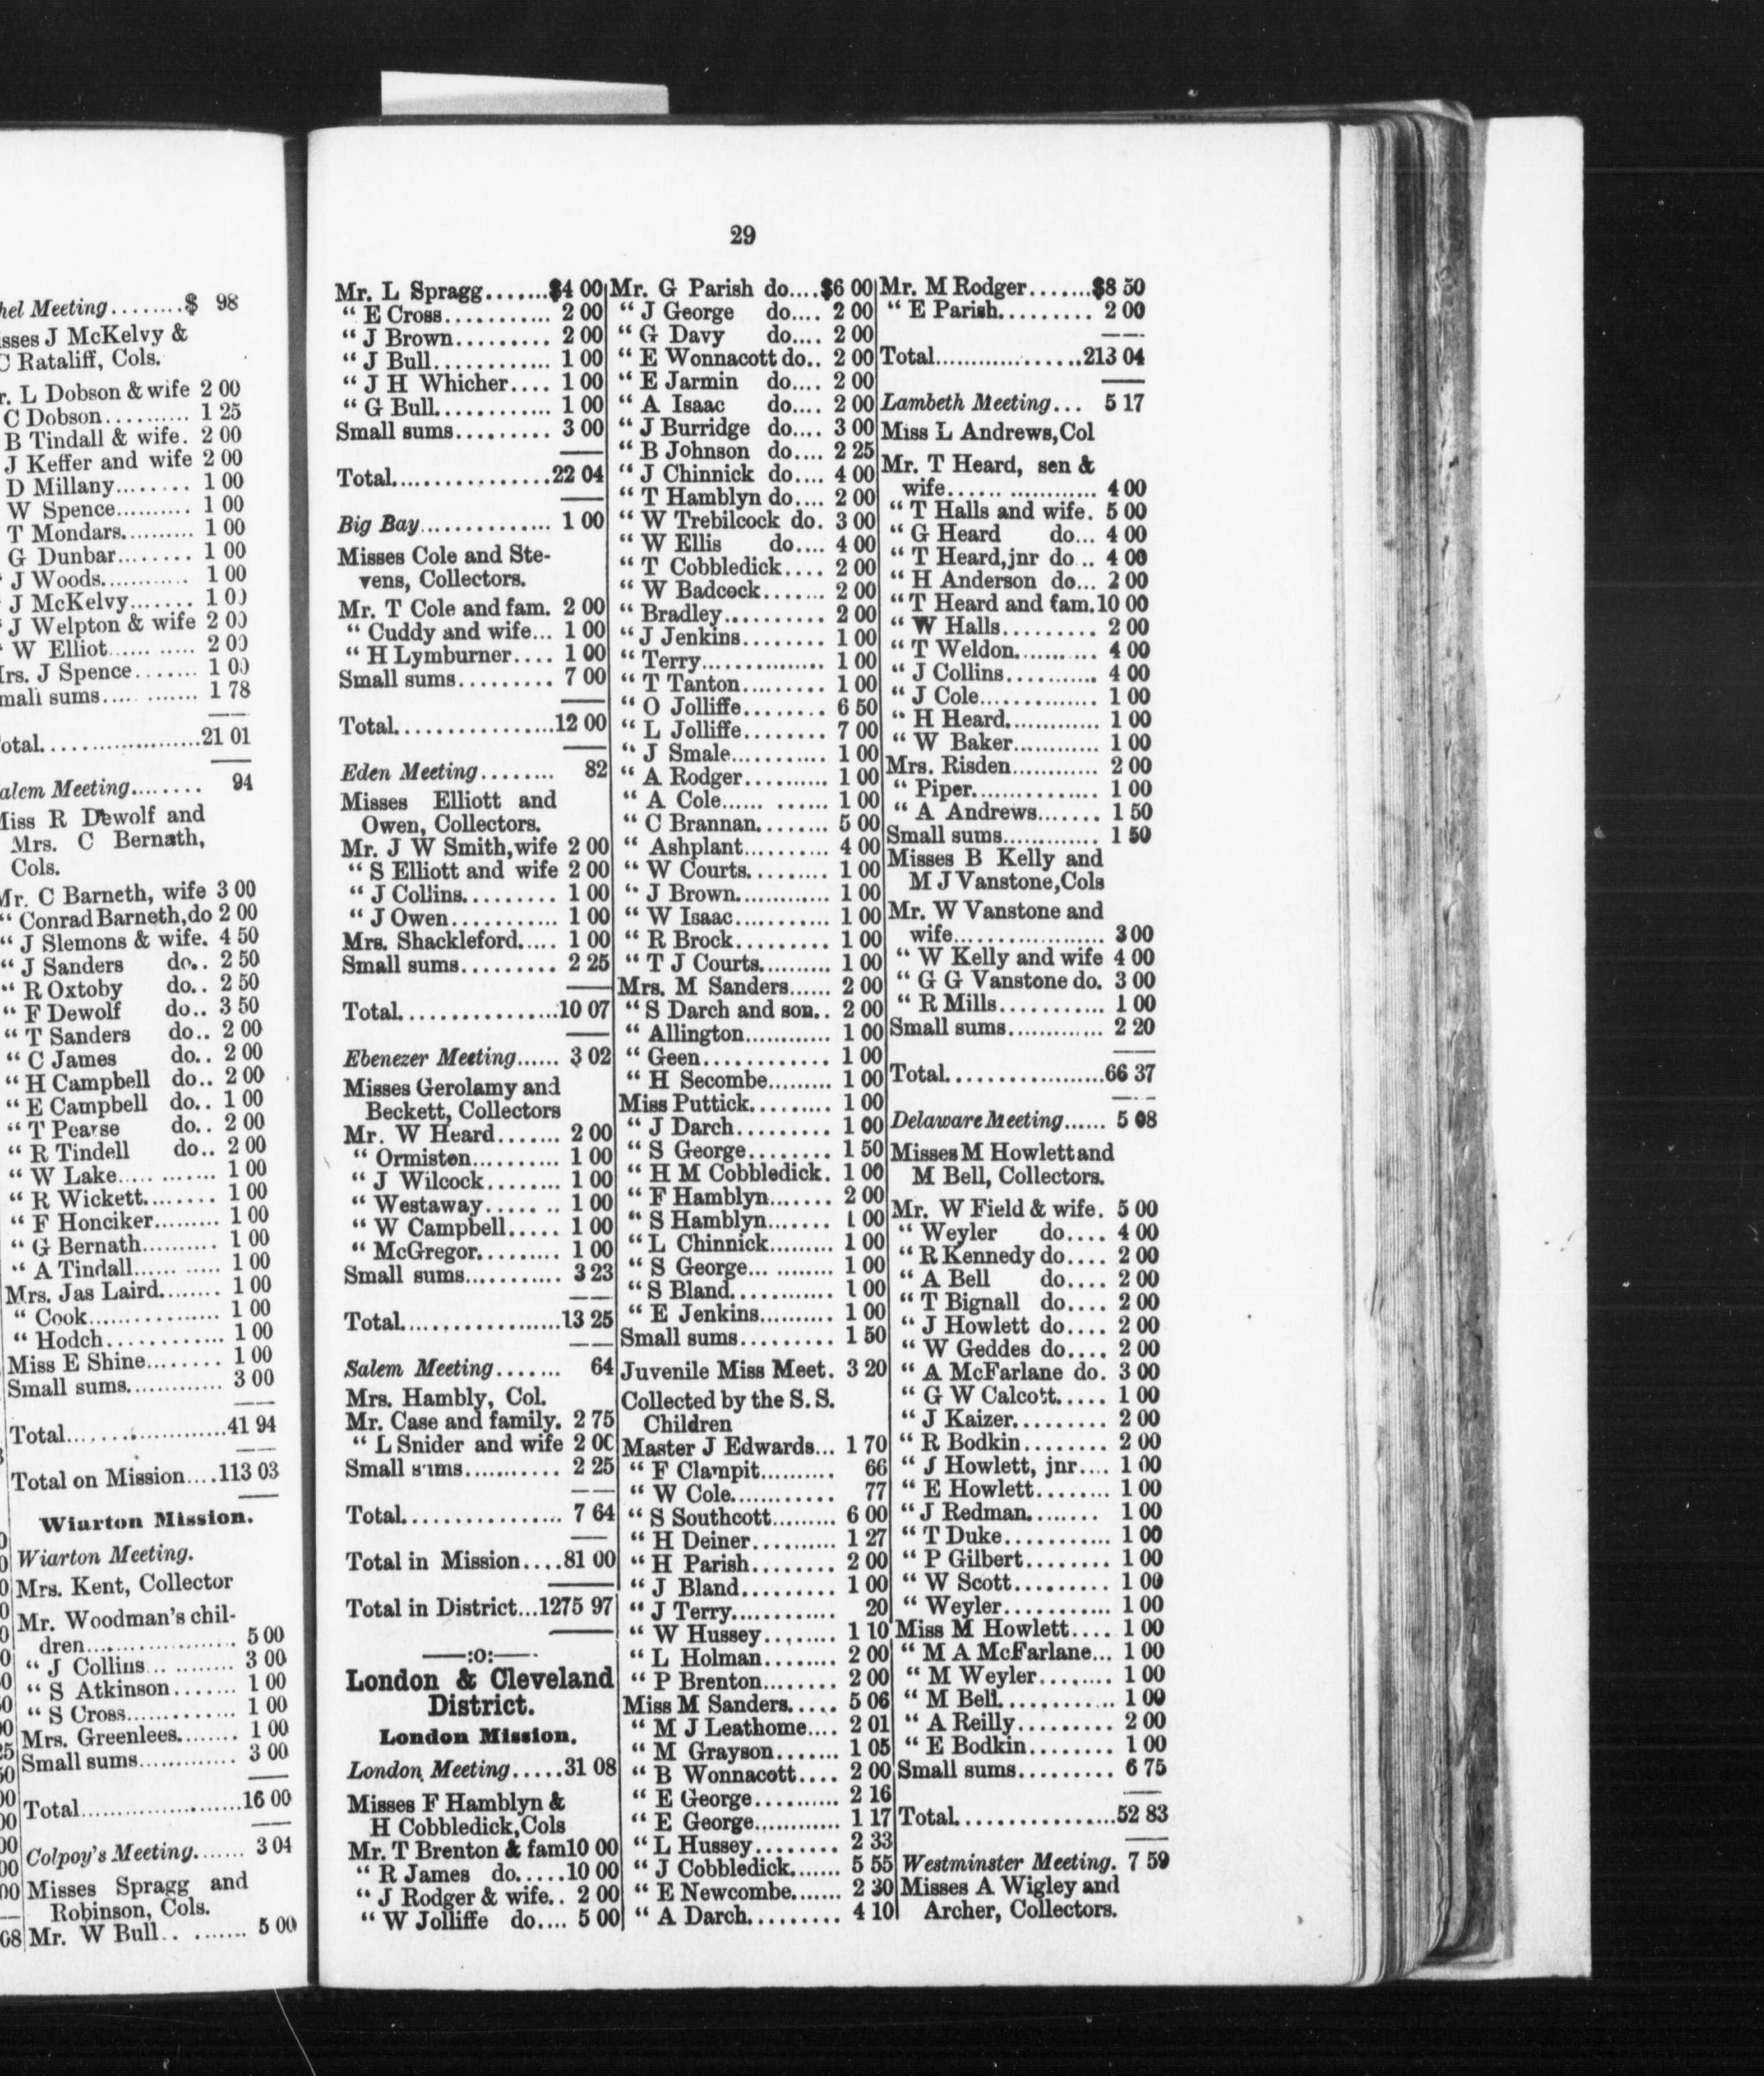 hel Meeting........$ 98
isses J McKelvy &
C Rataliff, Cols.
r. L Dobson & wife 2 00
C Dobson.......... 1 25
B Tindall & wife. 2 00
J Keffer and wife 2 00
D Millany........ 1 00
W Spence.......... 1 00
T Mondars.......... 1 00
G Dunbar........ 1 00
J Woods............ 1 00
J McKelvy....... 1 00
J Welpton & wife 2 00
W Elliot........... 2 00
rs. J Spence....... 1 00
mall sums............ 1 78
otal.....................21 01
alem Meeting........ 94
iss R Dewolf and
Mrs. C Bernath,
Cols.
Mr. C Barneth, wife 3 00
“ Conrad Barneth, do 2 00
“ J Slemons & wife. 4 50
“ J Sanders do.. 2 50
“ R Oxtoby do.. 2 50
“ F Dewolf do.. 3 50
“ T Sanders do.. 2 00
“ C James do.. 2 00
“ H Campbell do.. 2 00
“ E Campbell do.. 1 00
“ T Pearse do.. 2 00
“ R Tindell do.. 2 00
“ W Lake............ 1 00
“ R Wickett........ 1 00
“ F Honciker......... 1 00
“ G Bernath.......... 1 00
“ A Tindall........... 1 00
Mrs. Jas Laird........ 1 00
“ Cook................ 1 00
“ Hodch............. 1 00
Miss E Shine........ 1 00
Small sums............. 3 00
Total.....................41 94
Total on Mission....113 03
Wiarton Mission.
Wiarton Meeting.
Mrs. Kent, Collector
Mr. Woodman's chil-
dren.................... 5 00
“ J Collins............ 3 00
“ S Atkinson....... 1 00
“ S Cross............. 1 00
Mrs. Greenlees........ 1 00
Small sums............. 3 00
Total.......................16 00
Colpoy's Meeting....... 3 04
Misses Spragg and
Robinson, Cols.
Mr. W Bull.......... 5 00
29
Mr. L Spragg.......$4 00
“ E Cross............ 2 00
“ J Brown.......... 2 00
“ J Bull............. 1 00
“ J H Whicher.... 1 00
“ G Bull............. 1 00
Small sums.......... 3 00
Total...................22 04
Big Bay............... 1 00
Misses Cole and Ste-
vens, Collectors.
Mr. T Cole and fam. 2 00
“ Cuddy and wife... 1 00
“ H Lymburner.... 1 00
Small sums.......... 7 00
Total..................12 00
Eden Meeting........ 82
Misses Elliott and
Owen, Collectors.
Mr. J W Smith, wife 2 00
“ S Elliott and wife 2 00
“ J Collins.......... 1 00
“ J Owen............ 1 00
Mrs. Shackleford..... 1 00
Small sums.......... 2 25
Total..................10 07
Ebenezer Meeting...... 3 02
Misses Gerolamy and
Beckett, Collectors
Mr. W Heard....... 2 00
“ Ormiston.......... 1 00
“ J Wilcock........ 1 00
“ Westaway........ 1 00
“ W Campbell..... 1 00
“ McGregor.......... 1 00
Small sums........... 3 23
Total...................13 25
Salem Meeting....... 64
Mrs. Hambly, Col.
Mr. Case and family. 2 75
“ L Snider and wife 2 00
Small sums........... 2 25
Total................. 7 64
Total in Mission....81 00
Total in District...1275 97
——:o:——
London & Cleveland
District.
London Mission.
London Meeting.....31 08
Misses F Hamblyn &
H Cobbledick, Cols
Mr. T Brenton & fam10 00
“ R James do.....10 00
“ J Rodger & wife.. 2 00
“ W Jolliffe do.... 5 00
Mr. G Parish do....$6 00
“ J George do.... 2 00
“ G Davy do.... 2 00
“ E Wonnacott do.. 2 00
“ E Jarmin do.... 2 00
“ A Isaac do.... 2 00
“ J Burridge do.... 3 00
“ B Johnson do.... 2 25
“ J Chinnick do.... 4 00
“ T Hamblyn do.... 2 00
“ W Trebilcock do. 3 00
“ W Ellis do.... 4 00
“ T Cobbledick.... 2 00
“ W Badcock....... 2 00
“ Bradley........... 2 00
“ J Jenkins......... 1 00
“ Terry.............. 1 00
“ T Tanton......... 1 00
“ O Jolliffe........ 6 50
“ L Jolliffe........ 7 00
“ J Smale........... 1 00
“ A Rodger.......... 1 00
“ A Cole............ 1 00
“ C Brannan........ 5 00
“ Ashplant.......... 4 00
“ W Courts......... 1 00
“ J Brown........... 1 00
“ W Isaac........... 1 00
“ R Brock.......... 1 00
“ T J Courts.......... 1 00
Mrs. M Sanders...... 2 00
“ S Darch and son.. 2 00
“ Allington........... 1 00
“ Geen.............. 1 00
“ H Secombe......... 1 00
Miss Puttick......... 1 00
“ J Darch........... 1 00
“ S George........ 1 50
“ H M Cobbledick. 1 00
“ F Hamblyn....... 2 00
“ S Hamblyn....... 1 00
“ L Chinnick......... 1 00
“ S George............ 1 00
“ S Bland............ 1 00
“ E Jenkins.......... 1 00
Small sums.......... 1 50
Juvenile Miss Meet. 3 20
Collected by the S. S.
Children
Master J Edwards... 1 70
“ F Clampit.......... 66
“ W Cole............ 77
“ S Southcott......... 6 00
“ H Deiner.......... 1 27
“ H Parish......... 2 00
“ J Bland.......... 1 00
“ J Terry............ 20
“ W Hussey......... 1 10
“ L Holman........ 2 00
“ P Brenton........ 2 00
Miss M Sanders..... 5 06
“ M J Leathome.... 2 01
“ M Grayson....... 1 05
“ B Wonnacott.... 2 00
“ E George.......... 2 16
“ E George............ 1 17
“ L Hussey........ 2 33
“ J Cobbledick....... 5 55
“ E Newcombe....... 2 30
“ A Darch.......... 4 10
Mr. M Rodger.......$8 50
“ E Parish......... 2 00
Total..................213 04
Lambeth Meeting... 5 17
Miss L Andrews, Col
Mr. T Heard, sen &
wife.................. 4 00
“ T Halls and wife. 5 00
“ G Heard do... 4 00
“ T Heard, jnr do .. 4 00
“ H Anderson do... 2 00
“ T Heard and fam.10 00
“ W Halls......... 2 00
“ T Weldon.......... 4 00
“ J Collins........... 4 00
“ J Cole.............. 1 00
“ H Heard............ 1 00
“ W Baker............ 1 00
Mrs. Risden............ 2 00
“ Piper............... 1 00
“ A Andrews....... 1 50
Small sums............. 1 50
Misses B Kelly and
M J Vanstone, Cols
Mr. W Vanstone and
wife.................. 3 00
“ W Kelly and wife 4 00
“ G G Vanstone do. 3 00
“ R Mills........... 1 00
Small sums............ 2 20
Total..................66 37
Delaware Meeting...... 5 08
Misses M Howlett and
M Bell, Collectors.
Mr. W Field & wife. 5 00
“ Weyler do.... 4 00
“ R Kennedy do.... 2 00
“ A Bell do.... 2 00
“ T Bignall do.... 2 00
“ J Howlett do.... 2 00
“ W Geddes do.... 2 00
“ A McFarlane do. 3 00
“ G W Calcott..... 1 00
“ J Kaizer.......... 2 00
“ R Bodkin........ 2 00
“ J Howlett, jnr.... 1 00
“ E Howlett........ 1 00
“ J Redman........ 1 00
“ T Duke........... 1 00
“ P Gilbert........ 1 00
“ W Scott.......... 1 00
“ Weyler........... 1 00
Miss M Howlett.... 1 00
“ M A McFarlane... 1 00
“ M Weyler........ 1 00
“ M Bell............ 1 00
“ A Reilly.......... 2 00
“ E Bodkin........ 1 00
Small sums.......... 6 75
Total..................52 83
Westminster Meeting. 7 59
Misses A Wigley and
Archer, Collectors.